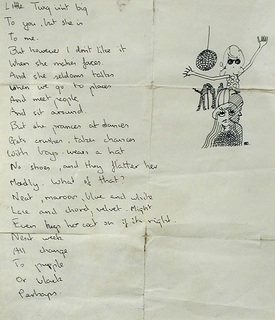 Little Tung aint big
To you, but she is
To me.
But however I dont like it
When she makes faces.
And she seldom talks
When we go to places
And meet people
And sit around.
But she prances at dances
Gets crushes, takes chances
With boys wears a hat
No shoes, and they flatter her
Madly. What of that?
Neat, maroon, blue and white
Lace and chord, velvet Might
Even keep her coat on if its right.
Next week
All change
To purple
Or black
Perhaps.